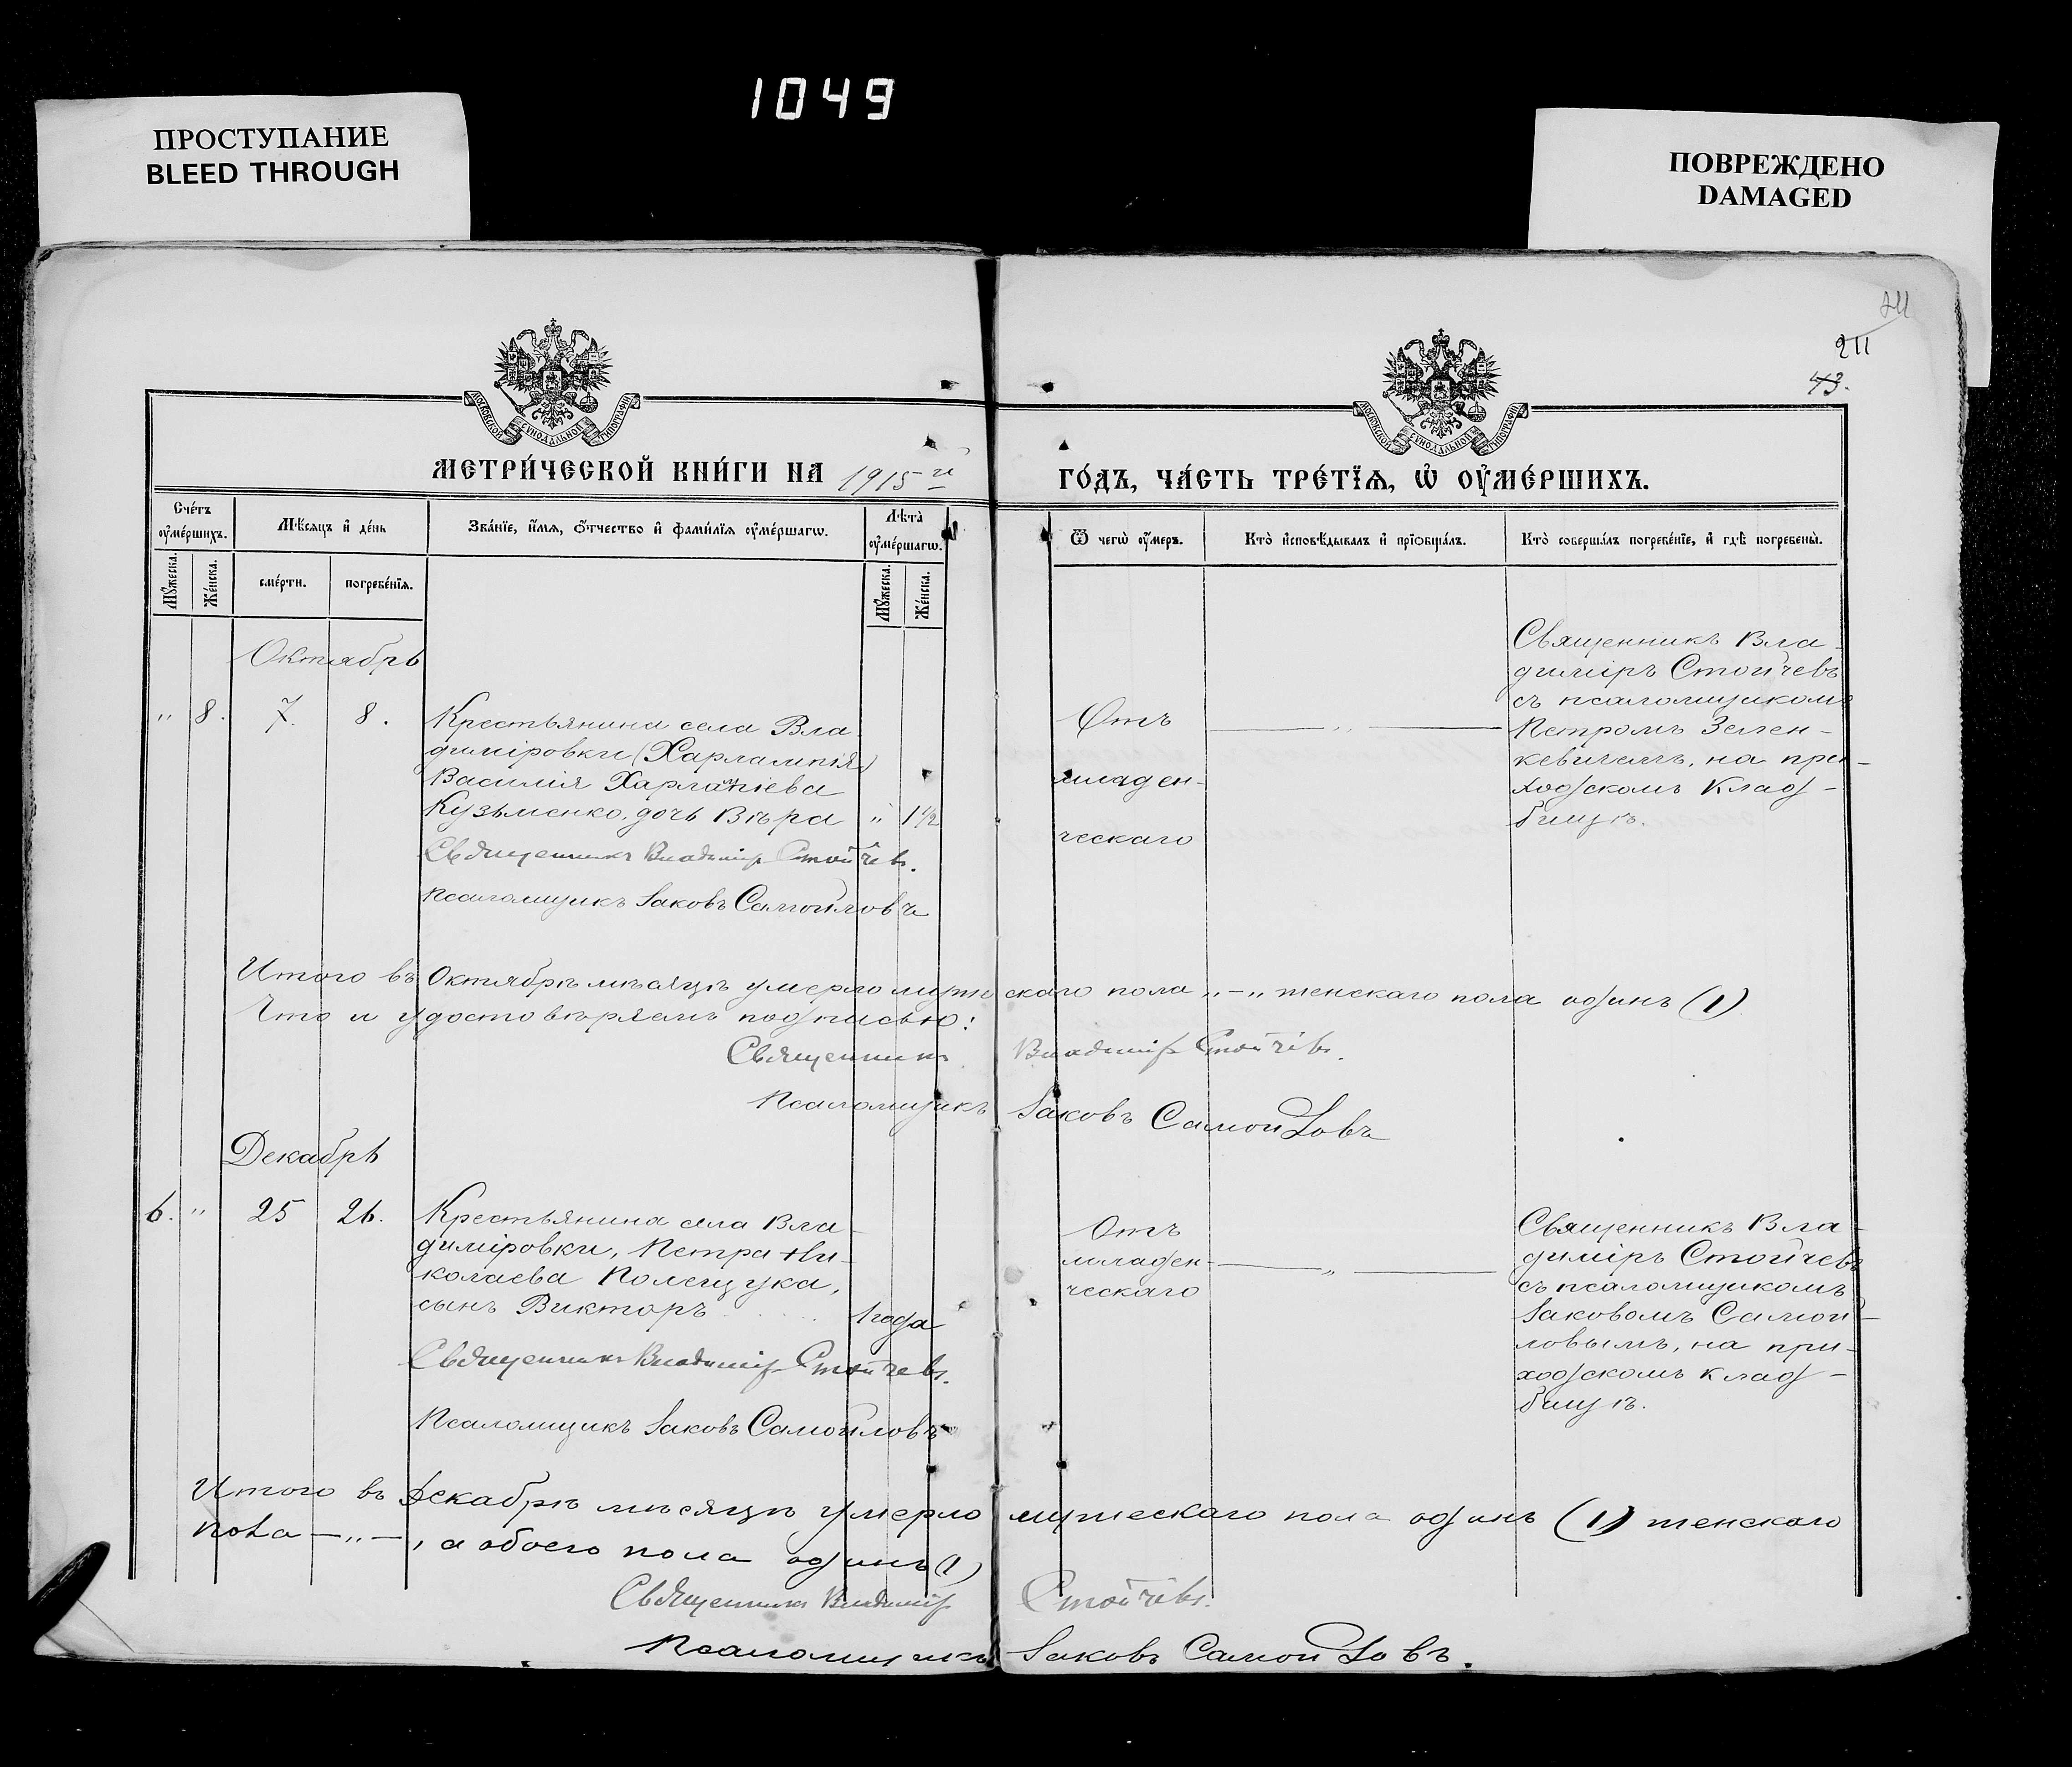 1049
ПРОСТУПАНИЕ
BLEED THROUGH
ПОВРЕЖДЕНО
DAMAGED
211
211
43.
МОСКОВСКОЙ СУНОДАЛЬНОЙ ТИПОГРАФІИ
МОСКОВСКОЙ СУНОДАЛЬНОЙ ТИПОГРАФІИ
МЕТРИ́ЧЕСКОЙ КНИ́ГИ НА 1915 й ГО́ДЪ, ЧА́СТЬ ТРЕ́ТЇѦ, Ѡ҆ ОУ҆МЕ́РШИХЪ.
Сче́тъ оу҆ме́ршихъ.
Мѣ́сѧцъ и҆ де́нь
Зва́нїе, и҆́мѧ, ѻ҆́тчество и҆ фами́лїѧ оу҆ме́ршагѡ.
Лѣ́та̀ оу҆ме́ршагѡ.
Ѿ чегѡ̀ оу҆́меръ.
Кто̀ и҆сповѣ́дывалъ и҆ прїѡбща́лъ.
Кто̀ соверша́лъ погребе́нїе, и҆ гдѣ̀ погребены̀.
Мꙋ́жеска.
Же́нска.
сме́рти.
погребе́нїѧ.
Мꙋ́жеска.
Же́нска.
Октябрь
" 8. 7. 8.
Крестьянина села Вла-
диміровки (Харлампія)
Василія Харлампіева
Кузьменко, дочь Вѣра " 1½
Священникъ Владиміръ Стойчевъ.
Псаломщикъ Іаковъ Самойловъ
Отъ
младен-
ческаго
"
Священникъ Вла-
диміръ Стойчевъ
съ псаломщикомъ
Петромъ Зелен-
кевичемъ, на при-
ходскомъ клад-
бищѣ.
Итого въ Октябрѣ мѣсяцѣ умерло мужескаго пола „–„ женскаго пола одинъ (1)
Что и удостовѣряемъ подписью:
Священникъ Владиміръ Стойчевъ.
Псаломщикъ Іаковъ Самойловъ
Декабрь
6. " 25 26.
Крестьянина села Вла-
диміровки, Петра Ни-
колаева Полещука,
сынъ Викторъ 1 года
Священникъ Владиміръ Стойчевъ.
Псаломщикъ Іаковъ Самойловъ
Отъ
младен-
ческаго
"
Священникъ Вла-
диміръ Стойчевъ
съ псаломщикомъ
Іаковомъ Самой-
ловымъ, на при-
ходскомъ клад-
бищѣ.
Итого въ Декабрѣ мѣсяцѣ умерло мужескаго пола одинъ (1) женскаго
пола —„—, а обоего пола одинъ (1)
Священникъ Владиміръ Стойчевъ.
Псаломщикъ Іаковъ Самойловъ.